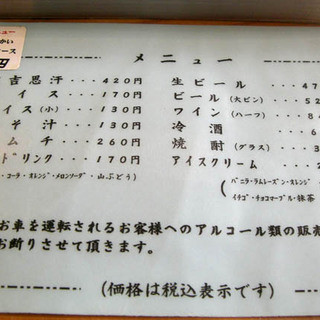 ニュー
かい
ース
円
メニュー
吉思汗・・・420円
イス・・・170円
イス(小)・・・130円
そ汁・・・130円
ムチ・・・260円
ドリンク・・・170円
・コーラ・オレンジ・メロンソーダ・山ぶどう)
生ビール・・・47
ビール(大ビン)・・52
ワイン(ハーフ)・・8
冷酒・・・6
焼酎(グラス)・・3
アイスクリーム・・・2
(バニラ・ラムレーズン・オレンジ
イチゴ・チョコマーブル・抹茶
お車を運転されるお客様へのアルコール類の販売
お断りさせて頂きます。
(価格は税込表示です)